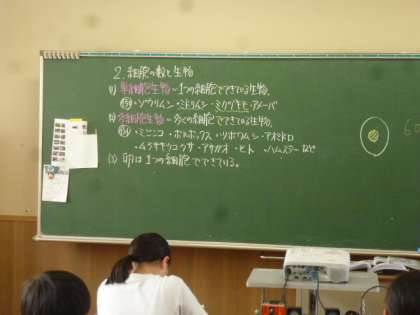 2. 細胞の数と生物
(1) 単細胞生物…1つの細胞でできている生物
例・ゾウリムシ・ミドリムシ・ミカヅキモ・アメーバ
(2) 多細胞生物…多くの細胞でできている生物
例・ミジンコ・ボルボックス・ツボワムシ・アオミドロ
・ムラサキツユクサ・アサガオ・ヒト・ハムスターなど
(3) 卵は1つの細胞でできている。